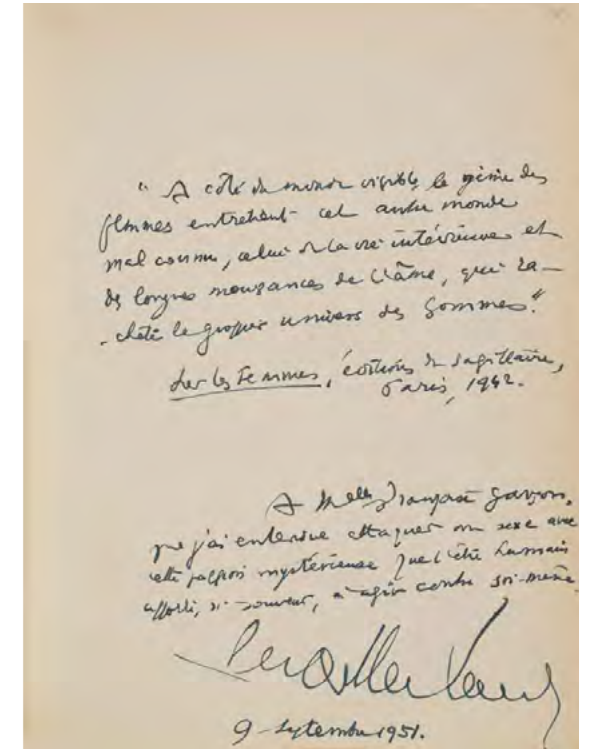 " A côté du monde visible, le génie des
femmes entretient cet autre monde
mal connu, celui de la vie intérieure et
des longues de l'âme, qui ra-
-chète le grossier univers des hommes."
Sur les Femmes, éditions du Sagittaire,
Paris, 1942.
A Melle Françoise Garçon,
que j'ai entendue attaquer son sexe avec
cette passion mystérieuse que l'être humain
apporte, si souvent, à agir contre soi-même
Montherlant
9 septembre 1951.